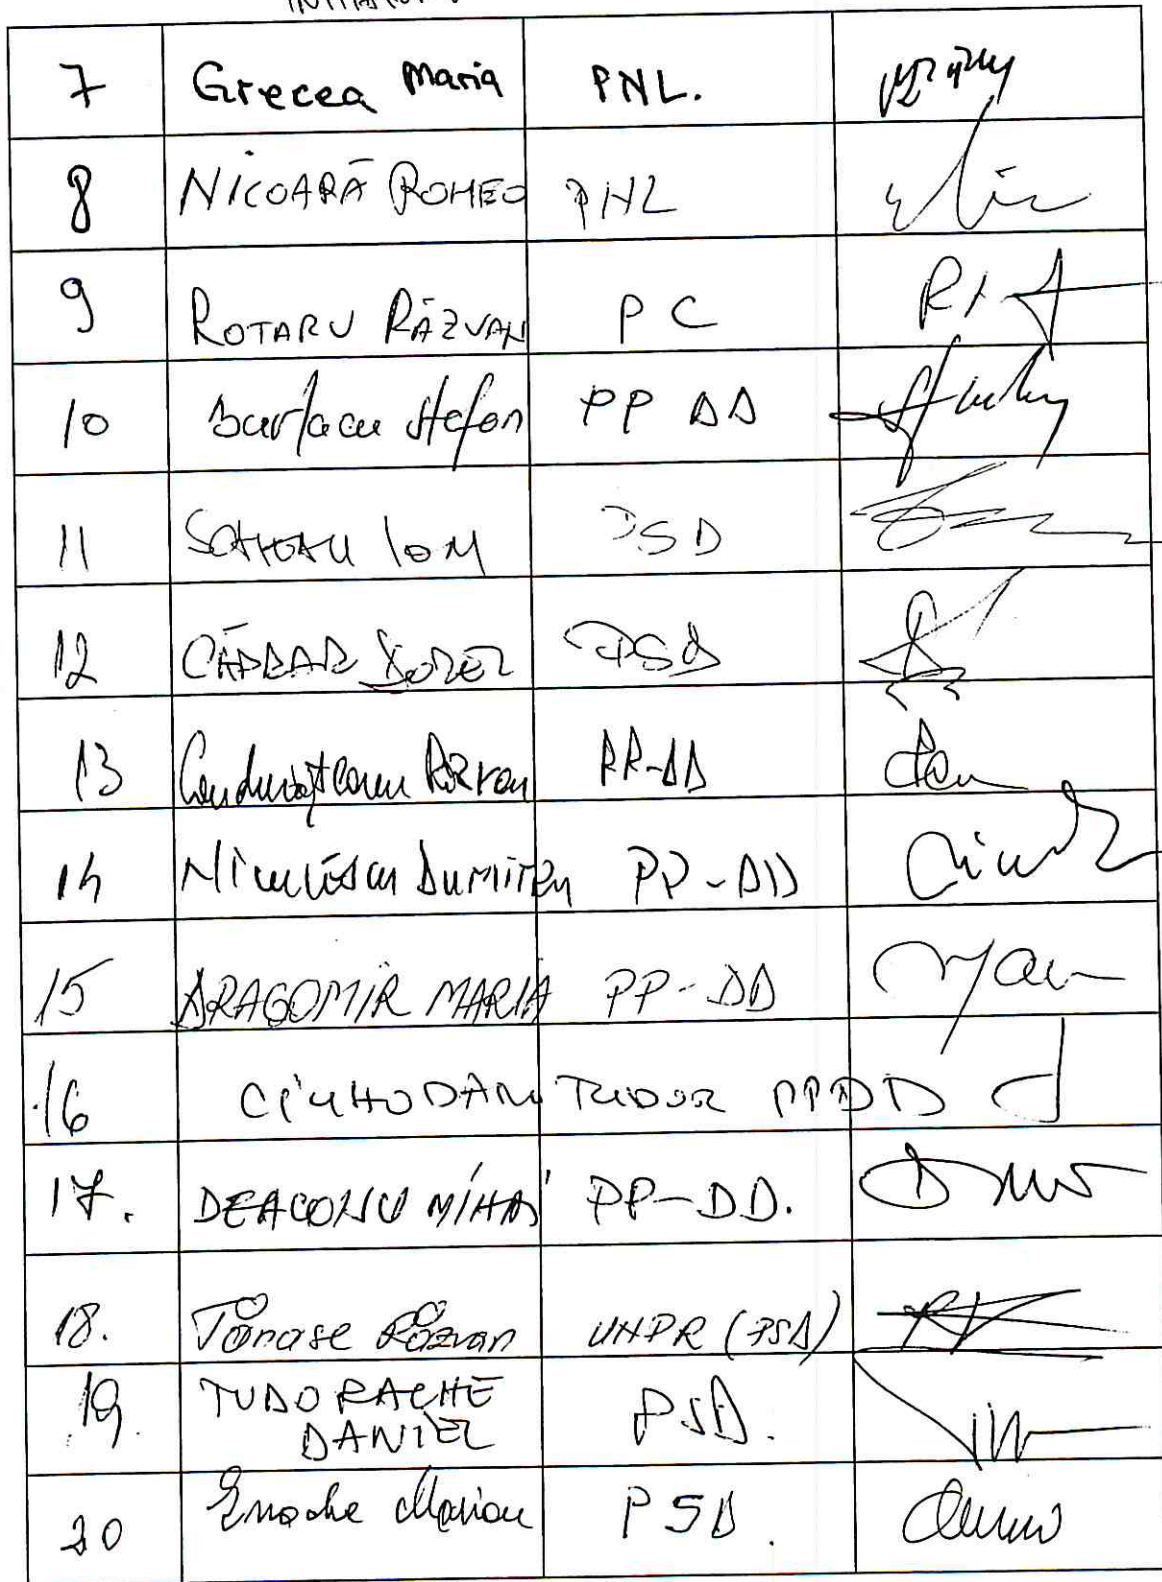 7 Grecea Maria PNL.
8 NICOARĂ ROMEO PNL
9 ROTARU RĂZVAN PC
10 Burlacu Stefan PP DD
11 ION PSD
12 CĂPRAR DOREL PSD
13 Condurățeanu Răzvan PP-DD
14 Niculescu Dumitru PP-DD
15 DRAGOMIR MARIA PP-DD
16 CIUHODARU TUDOR PPDD
17. DEACONU MIHAI PP-DD.
18. Tănase Răzvan UNPR (PSD)
19. TUDORACHE
DANIEL PSD.
20 Enache Marian PSD.